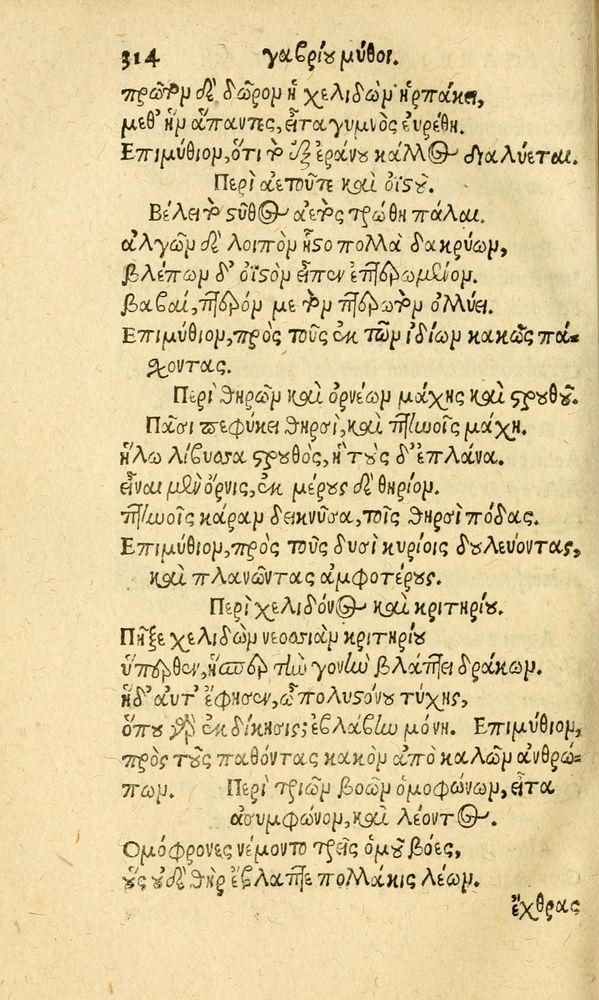 314 γαβρίου μύθοι.
πρῶτον δὲ δῶρον ἡ χελιδὼν ἡρπάκει,
μεθ' ἣν ἅπαντες, εἶτα γυμνὸς εὑρέθη.
Επιμύθιον, ὅτι τὸ ἐξ ἐράνου κάλλος διαλύεται.
Περὶ ἀετοῦτε καὶ οἰστοῦ.
Βέλει τὸ στῆθος ἀετὸς τρώθη πάλαι.
ἀλγῶν δὲ λοιπὸν ἧστο πολλὰ δακρύων,
βλέπων δ' οἰστὸν εἶπεν ἐπτερωμένον.
βαβαί, πτερόν με τὸν πτερωτὸν ὀλλύει.
Επιμύθιον, πρὸς τοὺς ἐκ τῶν ἰδίων κακῶς πά-
σχοντας.
Περὶ θηρῶν καὶ ὀρνέων μάχης καὶ στρουθοῦ.
Πᾶσι πεφύκει θηρσὶ, καὶ πτηνοῖς μάχη.
ἥλω λίβυσσα στρουθὸς, ἡ τοὺς δ' ἐπλάνα.
εἶναι μὲν ὄρνις, ἐκ μέρους δὲ θηρίον.
πτηνοῖς κάραν δεικνῦσα, τοῖς θηρσὶ πόδας.
Επιμύθιον, πρὸς τοὺς δυσὶ κυρίοις δουλεύοντας,
καὶ πλανῶντας ἀμφοτέρους.
Περὶ χελιδόνος καὶ κριτηρίου.
Πῆξε χελιδὼν νεοσσιὰν κριτηρίου
ὕπερθεν, ἧσπερ τὴν γονὴν βλάπτει δράκων.
ἡ δ' αὖτ' ἔφησεν, ὦ πολυστόνου τύχης,
ὅπου γὰρ ἐκδίκησις; ἐβλάβην μόνη. Επιμύθιον,
πρὸς τοὺς παθόντας κακὸν ἀπὸ καλῶν ἀνθρώ-
πων. Περὶ τριῶν βοῶν ὁμοφώνων, εἶτα
ἀσυμφώνον, καὶ λέοντος.
Ομόφρονες νέμοντο τρεῖς ὁμοῦ βόες,
οὓς οὐδὲ θὴρ ἔβλαπτε πολλάκις λέων.
ἔχθρας